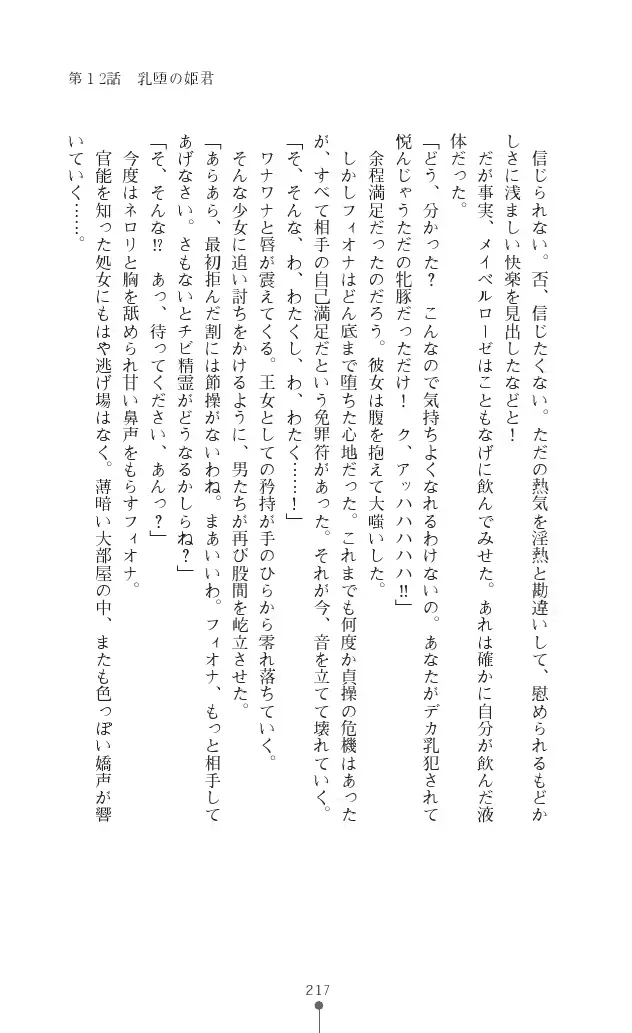 第12話　乳堕の姫君
　信じられない。否、信じたくない。ただの熱気を淫熱と勘違いして、慰められるもどか
しさに浅ましい快楽を見出したなどと！
　だが事実、メイベルローゼはこともなげに飲んでみせた。あれは確かに自分が飲んだ液
体だった。
「どう、分かった？　こんなので気持ちよくなれるわけないの。あなたがデカ乳犯されて
悦んじゃうただの牝豚だっただけ！　ク、アッハハハハハ!!」
　余程満足だったのだろう。彼女は腹を抱えて大嗤いした。
　しかしフィオナはどん底まで堕ちた心地だった。これまでも何度か貞操の危機はあった
が、すべて相手の自己満足だという免罪符があった。それが今、音を立てて壊れていく。
「そ、そんな、わ、わたくし、わ、わたく……！」
　ワナワナと唇が震えてくる。王女としての矜持が手のひらから零れ落ちていく。
　そんな少女に追い討ちをかけるように、男たちが再び股間を屹立させた。
「あらあら、最初拒んだ割には節操がないわね。まあいいわ。フィオナ、もっと相手して
あげなさい。さもないとチビ精霊がどうなるかしらね？」
「そ、そんな!?　あっ、待ってください、あんっ？」
　今度はネロリと胸を舐められ甘い鼻声をもらすフィオナ。
　官能を知った処女にもはや逃げ場はなく。薄暗い大部屋の中、またも色っぽい嬌声が響
いていく……。
217